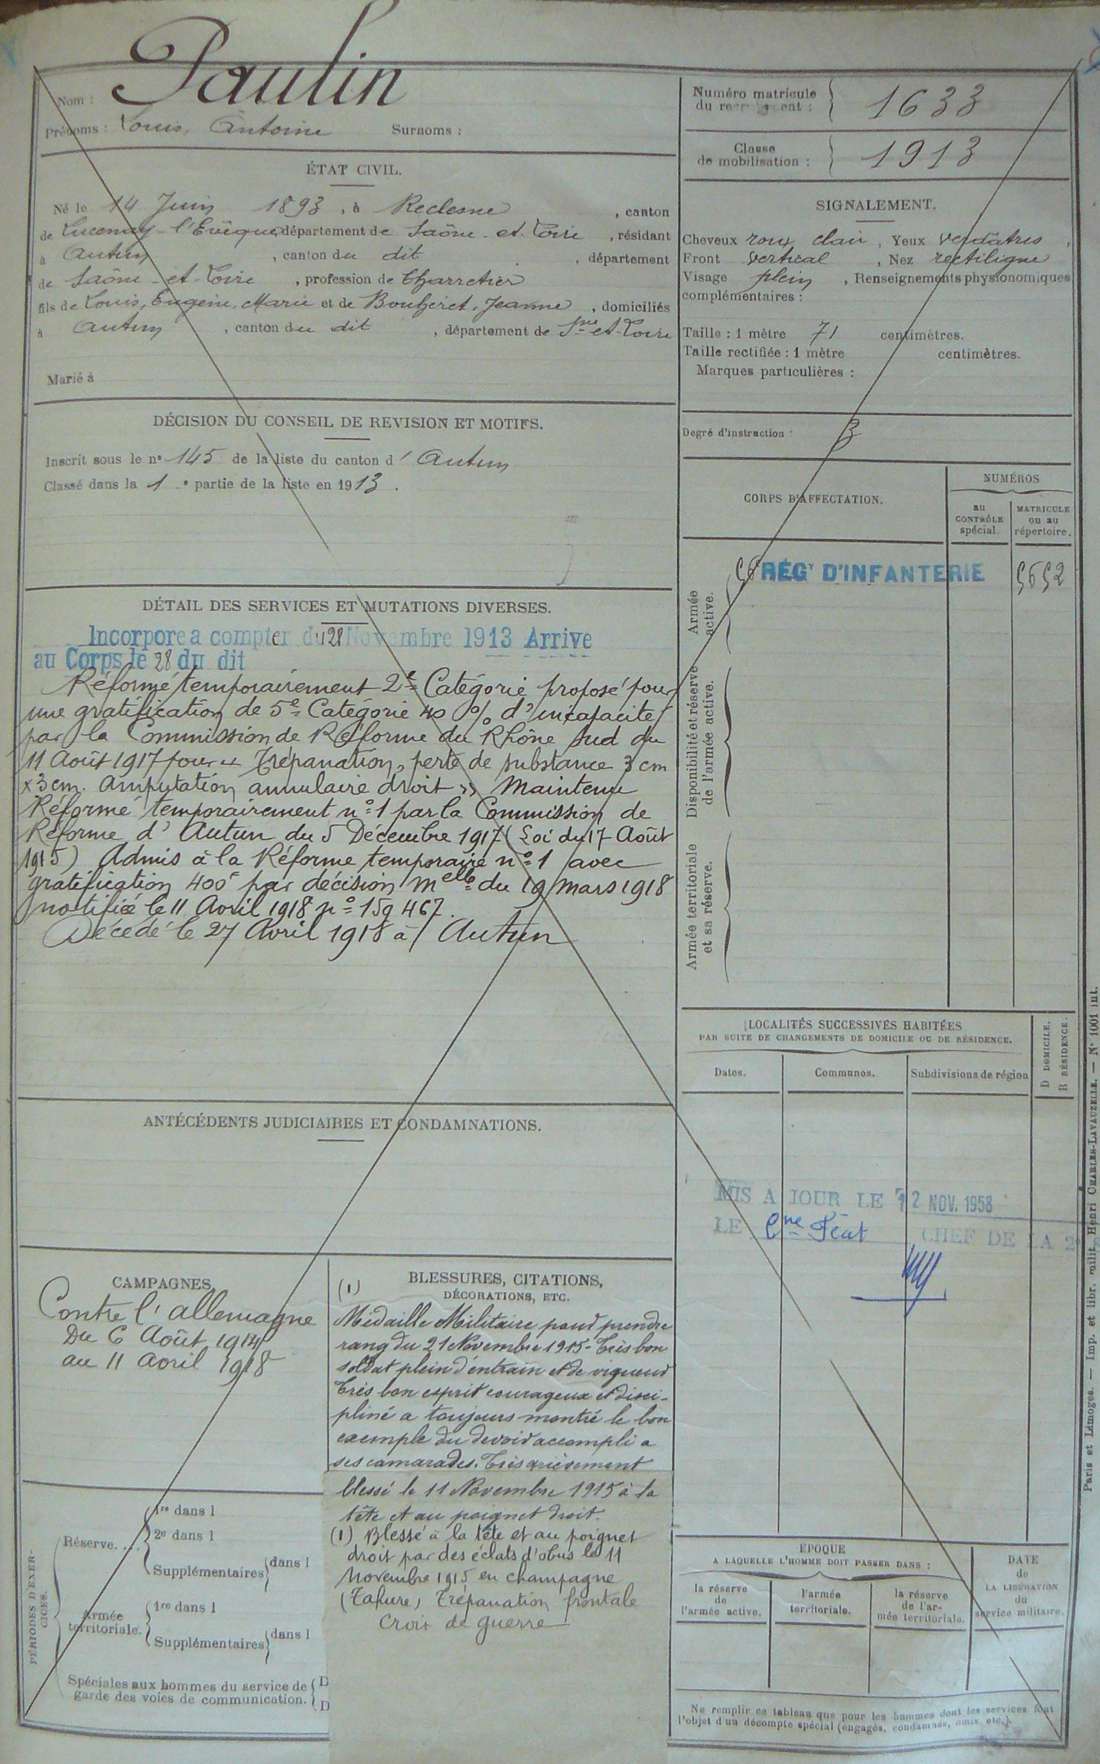 Nom : Paulin
Prénoms : Louis, Antoine Surnoms :
Numéro matricule
du recrutement : 1633
Classe
de mobilisation : 1913
ÉTAT CIVIL.
Né le 14 Juin 1893, à Reclesne, canton
de Lucenay-l'Evêque, département de Saône-et-Loire, résidant
à Autun, canton du dit, département
de Saône-et-Loire, profession de Charretier
fils de Louis, Eugène, Marie et de Jeanne, domiciliés
à Autun, canton du dit, département de Sne-et-Loire
Marié à
SIGNALEMENT.
Cheveux roux clair, Yeux verdâtres,
Front vertical, Nez rectiligne
Visage plein, Renseignements physionomiques
complémentaires :
Taille : 1 mètre 71 centimètres.
Taille rectifiée : 1 mètre centimètres.
Marques particulières :
Degré d'instruction : 3
DÉCISION DU CONSEIL DE REVISION ET MOTIFS.
Inscrit sous le n° 145 de la liste du canton d'Autun
Classé dans la 1e partie de la liste en 1913.
DÉTAIL DES SERVICES ET MUTATIONS DIVERSES.
Incorporé a compter du 28 Novembre 1913 Arrive
au Corps le 28 du dit
Réformé temporairement 2e Catégorie proposé pour
une gratification de 5e Catégorie 40 % d'incapacité
par la Commission de Réforme du Rhône Sud du
11 Août 1917 pour « Trépanation, perte de substance 3 cm
x 3 cm. Amputation annulaire droit » Maintenu
Réformé temporairement n° 1 par la Commission de
Réforme d'Autun du 5 Décembre 1917 (Loi du 17 Août
1915) Admis à la Réforme temporaire n° 1 avec
gratification 400f par décision Melle du 19 mars 1918
notifié le 11 Avril 1918 n° 159 467.
Décédé le 27 Avril 1918 à Autun
CORPS D'AFFECTATION.
NUMÉROS
au
CONTRÔLE
spécial.
MATRICULE
ou au
répertoire.
Armée
active.
56e RÉGt D'INFANTERIE 5652
Disponibilité et réserve
de l'armée active.
Armée territoriale
et sa réserve.
LOCALITÉS SUCCESSIVES HABITÉES
PAR SUITE DE CHANGEMENTS DE DOMICILE OU DE RÉSIDENCE.
Dates. Communes. Subdivisions de région
D DOMICILE.
R RÉSIDENCE.
MIS A JOUR LE 12 NOV. 1958
LE Cne CHEF DE LA 2
ANTÉCÉDENTS JUDICIAIRES ET CONDAMNATIONS.
CAMPAGNES.
Contre l'allemagne
Du 6 Août 1914
au 11 Avril 1918
BLESSURES, CITATIONS,
DÉCORATIONS, ETC.
(1)
Médaille Militaire pour prendre
rang du 21 Novembre 1915 - Très bon
soldat plein d'entrain et de vigueur
Très bon esprit courageux et disci-
pliné a toujours montré le bon
exemple du devoir accompli a
ses camarades. Très grièvement
blessé le 11 Novembre 1915 à la
tête et au poignet droit.
(1) Blessé à la tête et au poignet
droit par des éclats d'obus le 11
Novembre 1915 en champagne
(Tahure) Trépanation frontale
Croix de guerre
PÉRIODES D'EXER-
CICES.
Réserve...
1re dans l
2e dans l
Supplémentaires dans l
Armée
territoriale.
1re dans l
Supplémentaires dans l
Spéciales aux hommes du service de
garde des voies de communication.
D
D
ÉPOQUE
A LAQUELLE L'HOMME DOIT PASSER DANS :
la réserve
de
l'armée active.
l'armée
territoriale.
la réserve
de l'ar-
mée territoriale.
DATE
de
LA LIBÉRATION
du
service militaire.
Ne remplir ce tableau que pour les hommes dont les services font
l'objet d'un décompte spécial (engagés, condamnés, omis, etc.).
Paris et Limoges. — Imp. et libr. milit. Henri CHARLES-LAVAUZELLE. — N° 1001 int.